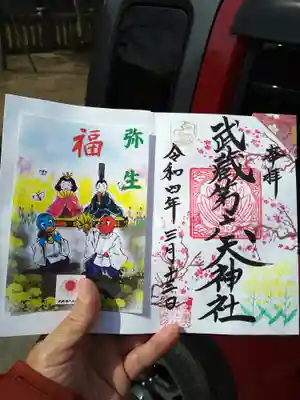 弥生
福
奉拝
武蔵第六天神社
令和四年三月十三日